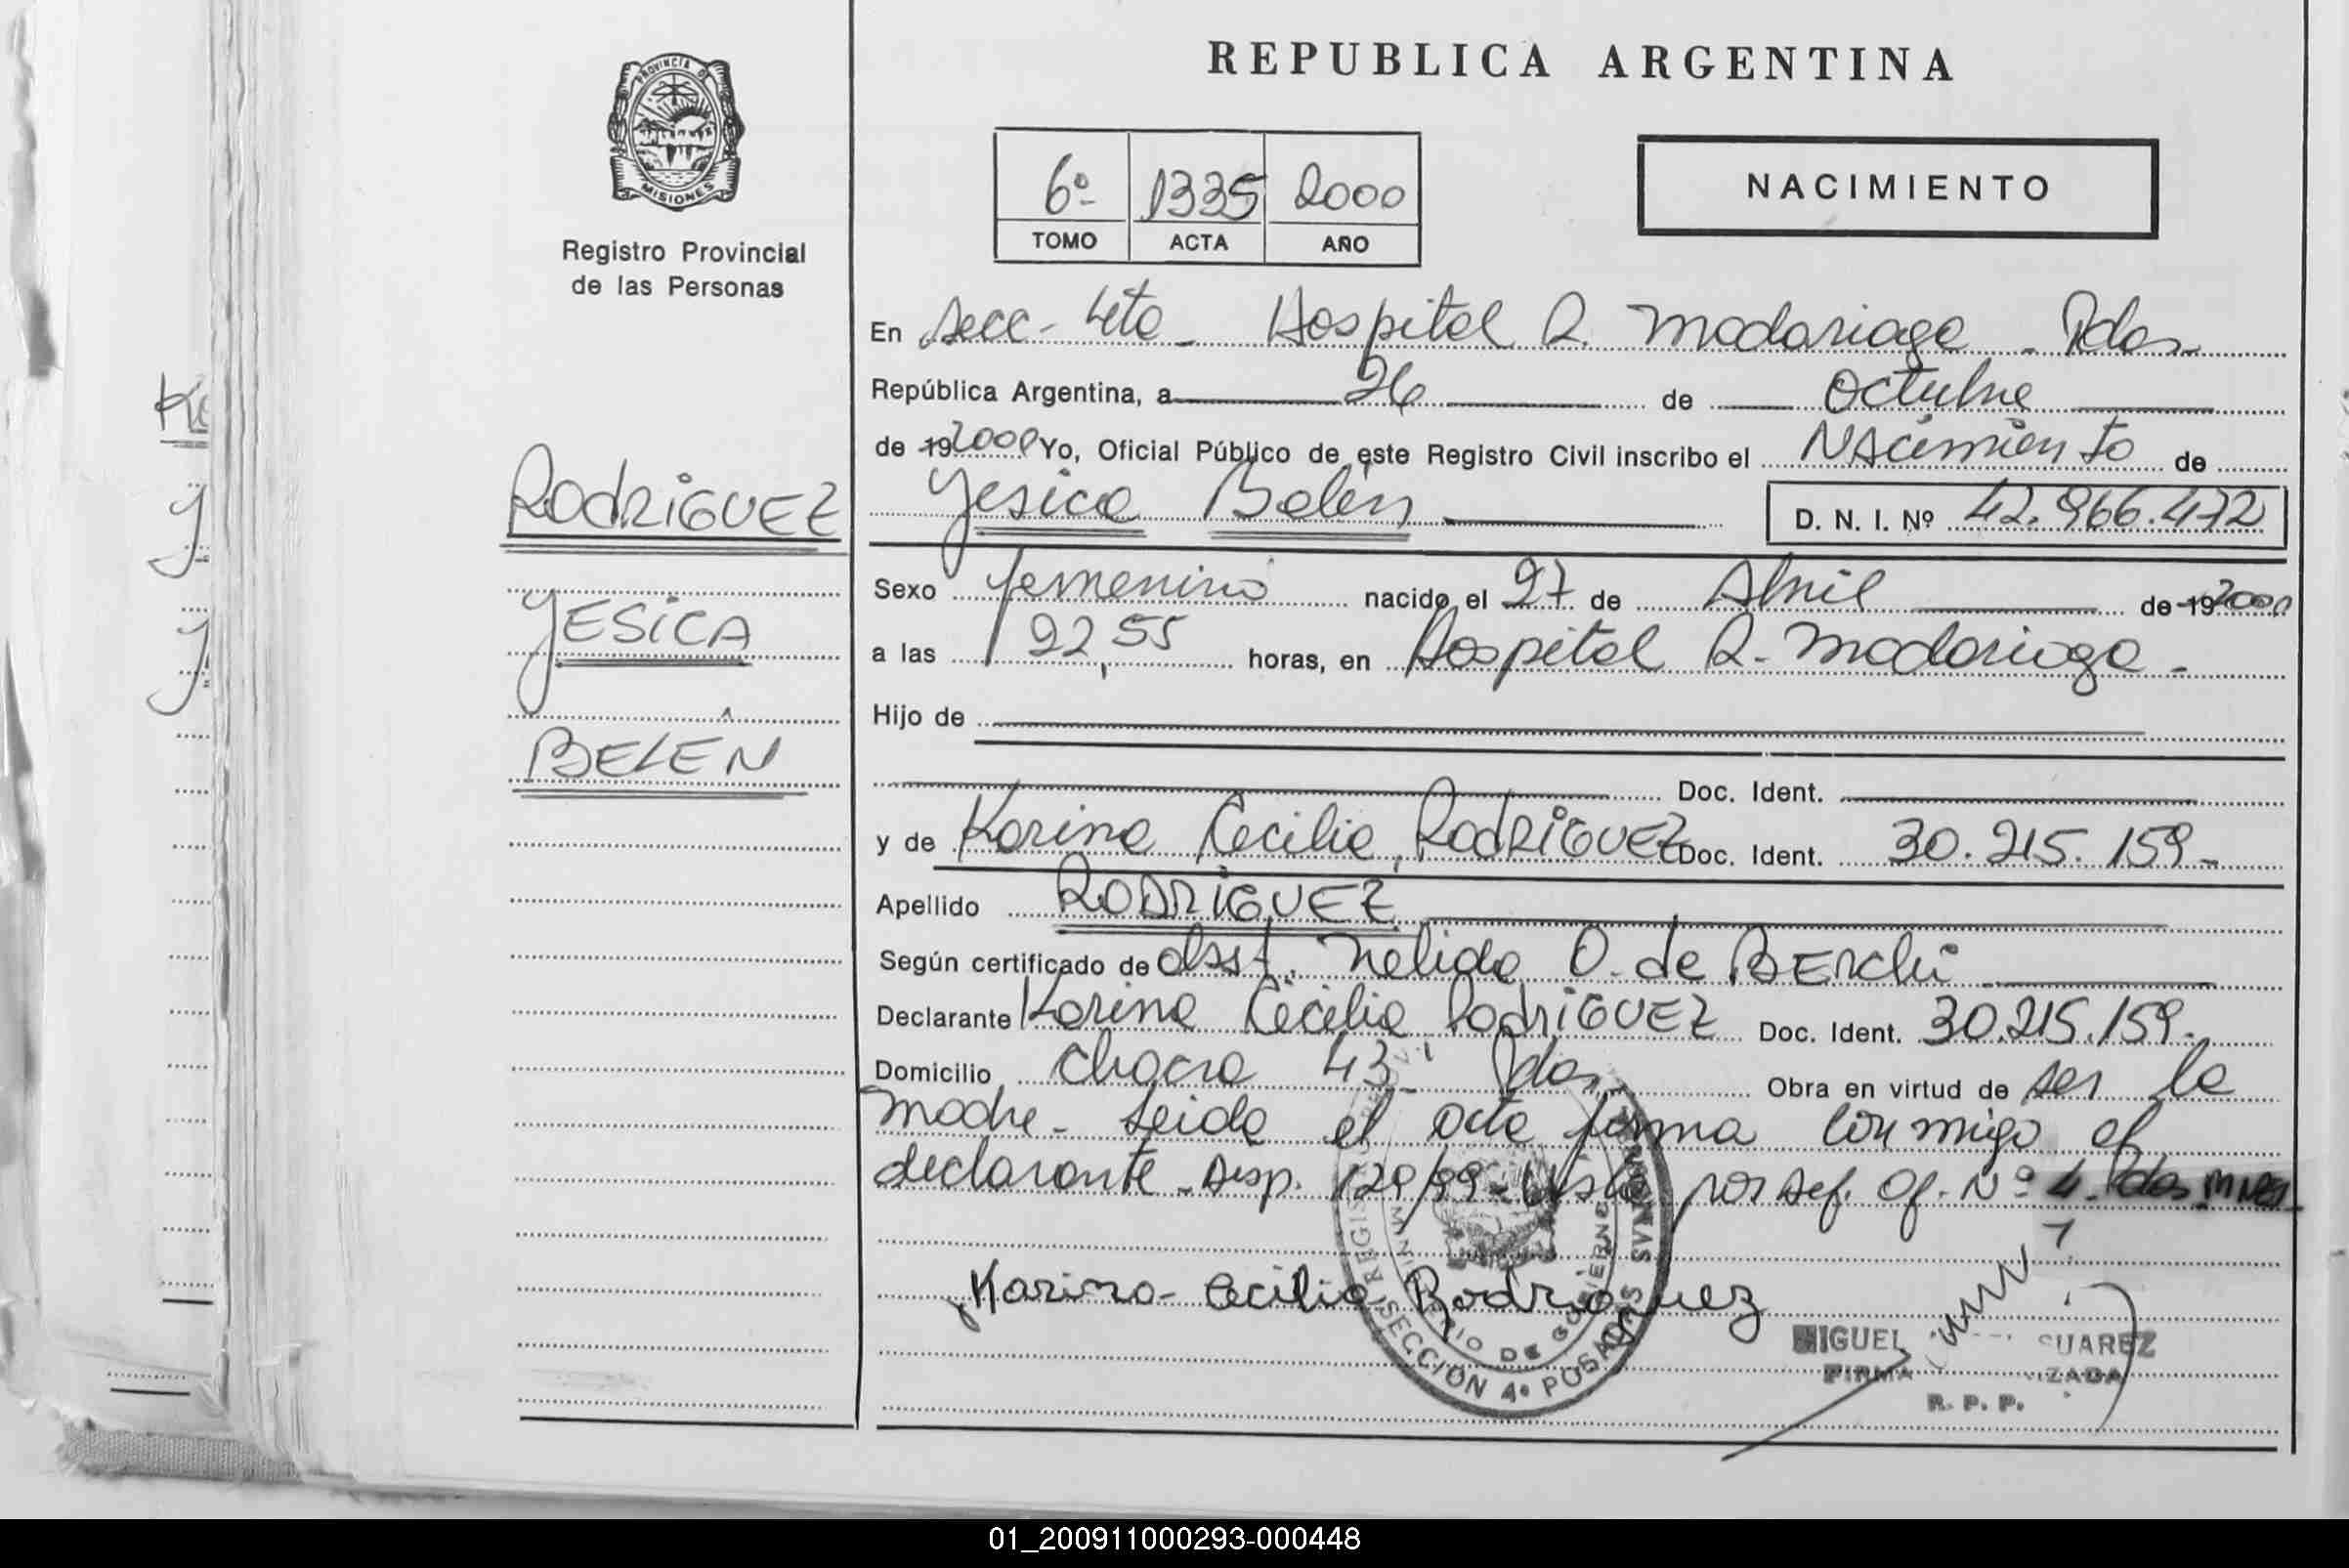 PROVINCIA DE
MISIONES
Registro Provincial
de las Personas
RODRIGUEZ
YESICA
BELÉN
REPUBLICA ARGENTINA
6º 1335 2000
TOMO ACTA AÑO
NACIMIENTO
En Secc- 4ta- Hospital R. Madariaga - Pdas-
República Argentina, a 26 de Octubre
de 19 2000 Yo, Oficial Público de este Registro Civil inscribo el Nacimiento de
Yesica Belén D. N. I. Nº 42.966.472
Sexo femenino nacido el 27 de Abril de 19 2000
a las 22,55 horas, en Hospital R. Madariaga-
Hijo de
Doc. Ident.
y de Karina Cecilia RODRIGUEZ Doc. Ident. 30.215.159-
Apellido RODRIGUEZ
Según certificado de Obst. Nelida O. de BERchi
Declarante Karina Cecilia RodRIGUEZ Doc. Ident. 30.215.159-
Domicilio Chacra 43- Pdas, Obra en virtud de ser la
madre- Leida el acta firma conmigo el
declarante - Disp. 129/99 - Vista por Jef. Of. Nº 4- Pdas Mnes-
Karina Cecilia Rodriguez
MINISTERIO DE GOBIERNO
SECCIÓN 4º POSADAS
MIGUEL SUAREZ
FIRMA
R. P. P.
01_200911000293-000448